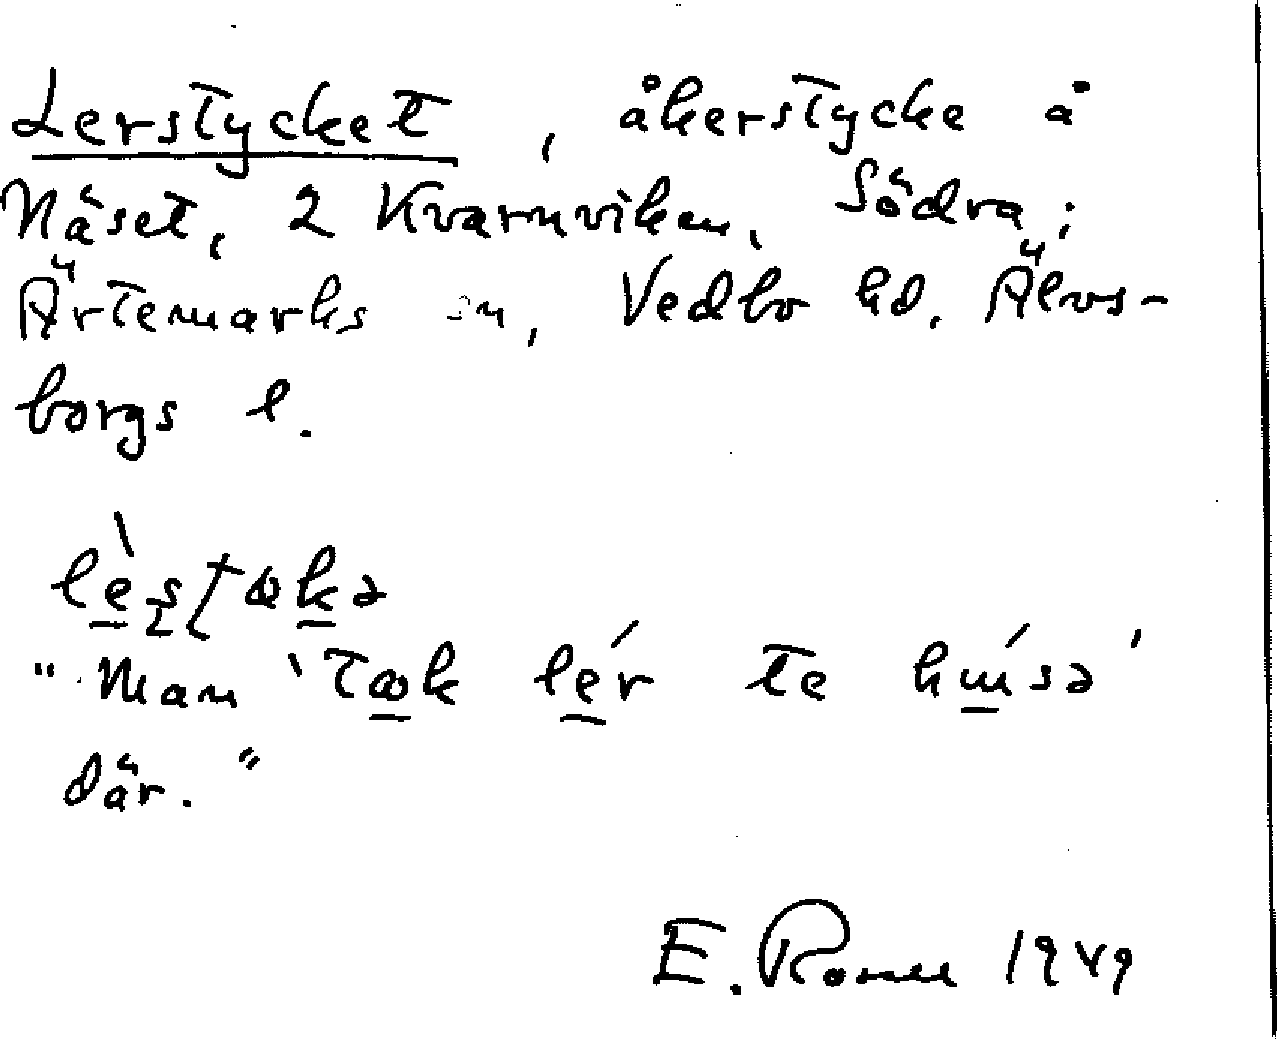 Lerstycket, åkerstycke å
Näset, 2 Kvarnviken, Södra;
Ärtemarks sn, Vedbo hd. Älvs-
borgs l.
"Man 'tœk lér te
där."
E. 1949